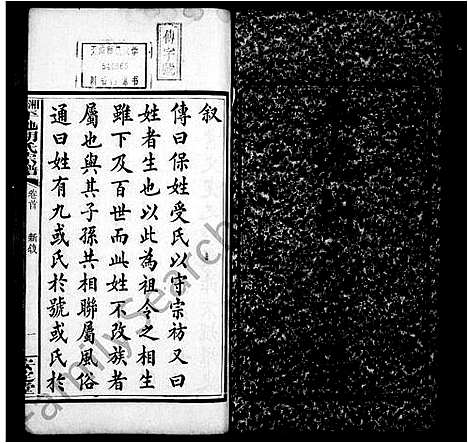 叙
傳曰保姓受氏以守宗祊又曰
姓者生也以此為祖令之相生
雖下及百世而此姓不改族者
屬也與其子孫共相聯屬風俗
通曰姓有九或氏於號或氏於
卷首
新叙
一
傳字號
FamilySearch